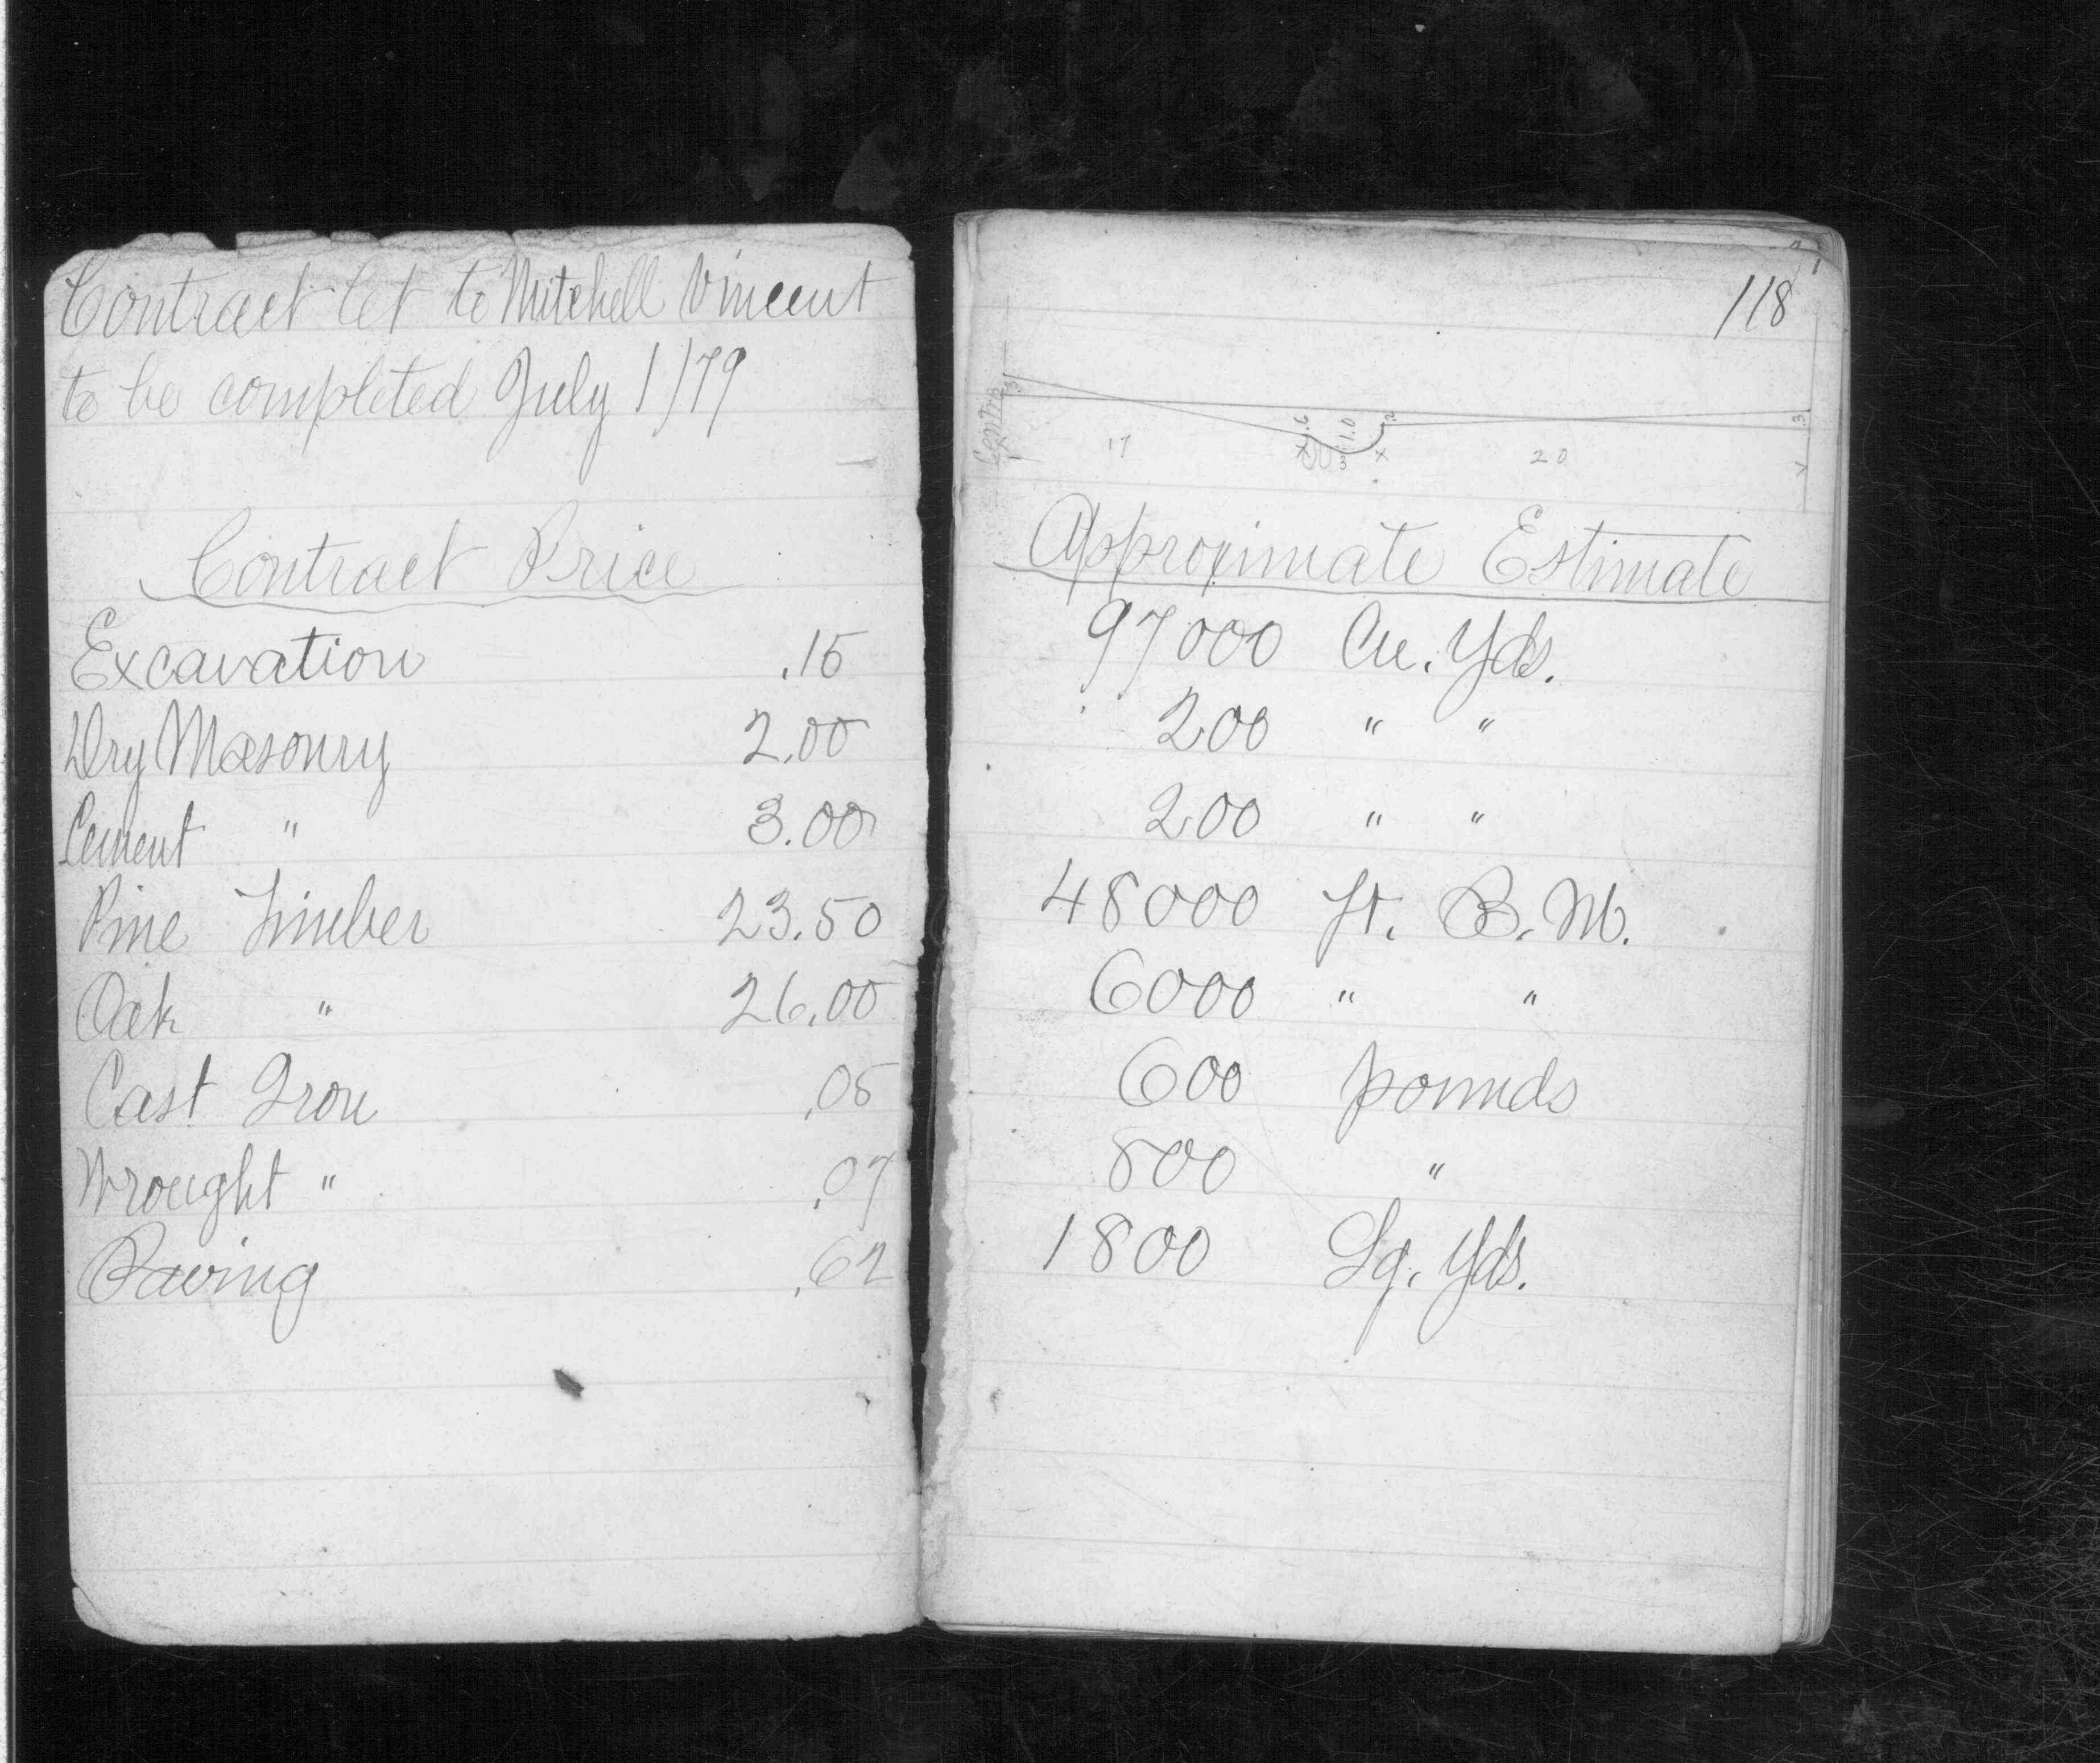 Contract let to Mitchell Vincent
to be completed July 1/79
Contract Price
Excavation .15
Dry Masonry 2.00
Cement " 3.00
Pine Timber 23.50
Oak " 26.00
Cast Iron .05
Wrought " .07
Paving .62
118
Centre .3 17 .6 1.0 3 .2 20 .3
Approximate Estimate
97000 Cu. Yds.
200 " "
200 " "
48000 ft. B. M.
6000 " "
600 pounds
800 "
1800 Sq. Yds.